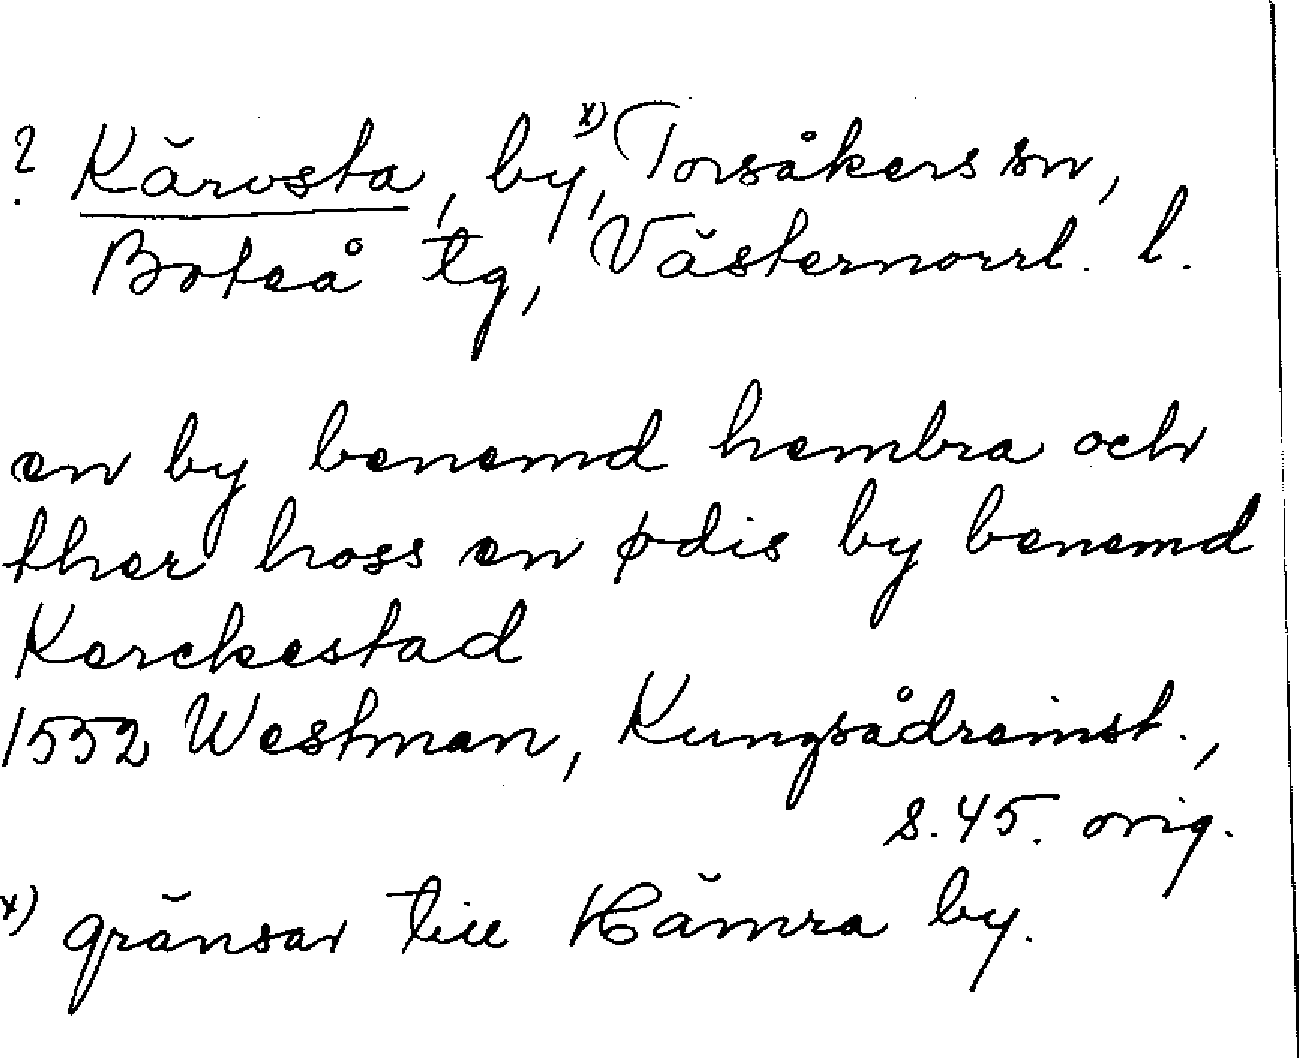 ? Kärvsta, by,x) Torsåkers sn,
Boteå tg, Västernorrl. l.
en by benemd hembra och
ther hoss en ødis by benemd
Kerckestad
1552 Westman, Kungsådreinst.,
s. 45. orig.
x) gränsar till Hämra by.